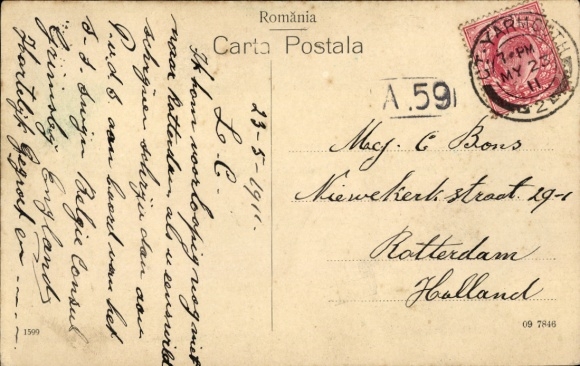 România
Carta Postala
GT YARMOUTH
7 PM
MY 23
11
A.59
23-5-1911.
L. C.
Ik kom voorloopig nog niet
naar Rotterdam, als u eens wilt
schrijven schrijf dan aan
P. v.d. B aan boord van het
s.s. Belgie Consul
Grimsby England
Hartelijk gegroet en - - - -
Mej. C Bons
Niewekerkstraat 29-1
Rotterdam
Holland
1599
09 7846